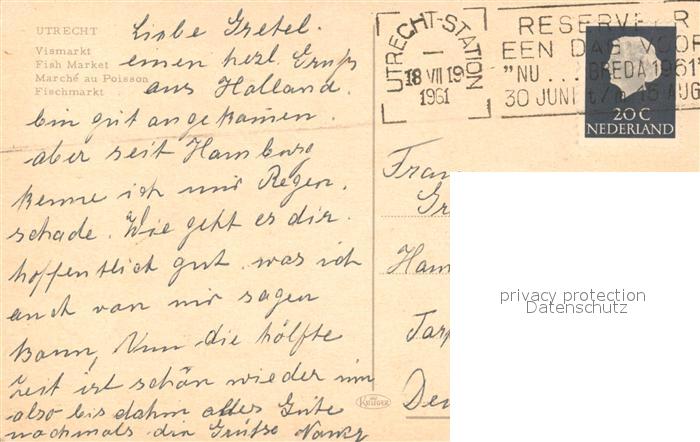 UTRECHT
Vismarkt
Fish Market
Marché au Poisson
Fischmarkt
Liebe Gretel.
einen herzl. Gruß
aus Holland.
bin gut angekommen.
aber seit Hamburg
kenne ich nur Regen.
schade. Wie geht es dir.
hoffentlich gut. was ich
auch von mir sagen
kann, Nun die hölfte
Zeit ist schön wieder um
also bis dahin alles Gute
nochmals die Grüße Nancy
UTRECHT-STATION
18 VII 19
1961
RESERVEER
EEN DAG VOOR
"NU ... BREDA 1961"
30 JUNI t/m 15 AUG
20 C
NEDERLAND
Ham
KRÜGER
privacy protection
Datenschutz